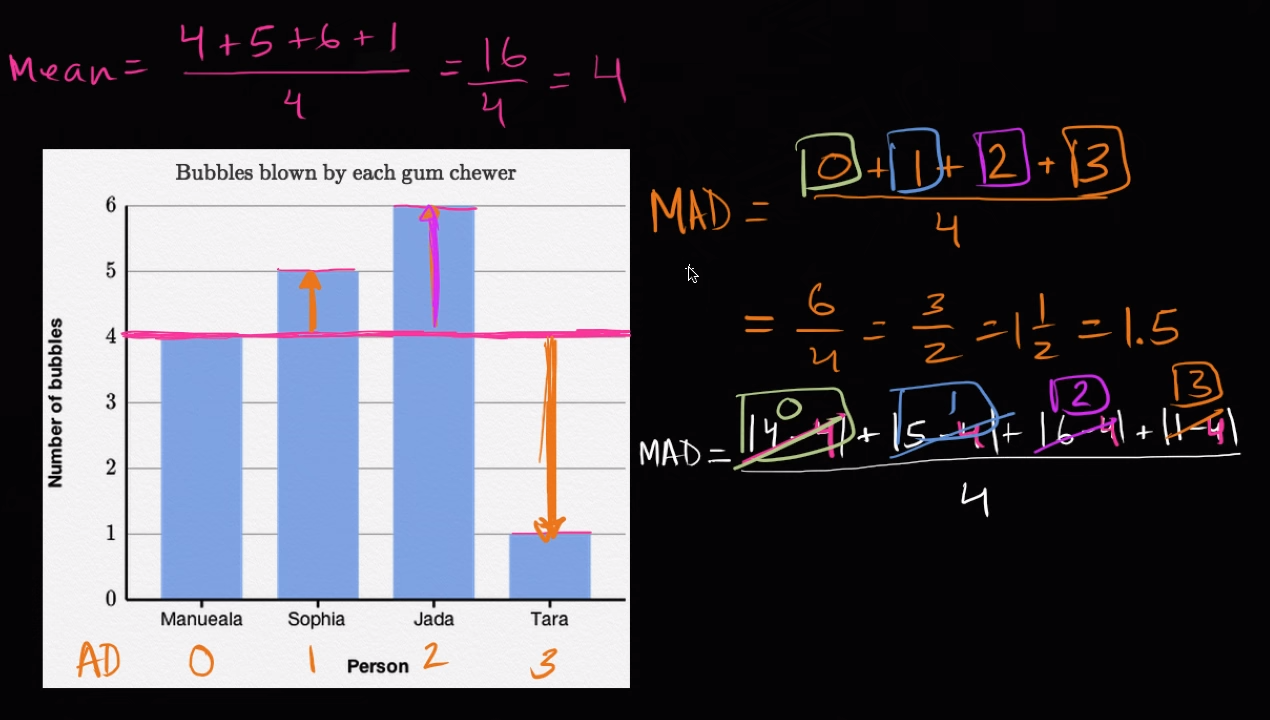 Mean = (4 + 5 + 6 + 1)/4 = 16/4 = 4
Bubbles blown by each gum chewer
Number of bubbles
6
5
4
3
2
1
0
Manueala Sophia Jada Tara
Person
AD 0 1 2 3
MAD = (0 + 1 + 2 + 3)/4
= 6/4 = 3/2 = 1 1/2 = 1.5
0 1 2 3
MAD = (|4 - 4| + |5 - 4| + |6 - 4| + |1 - 4|)/4